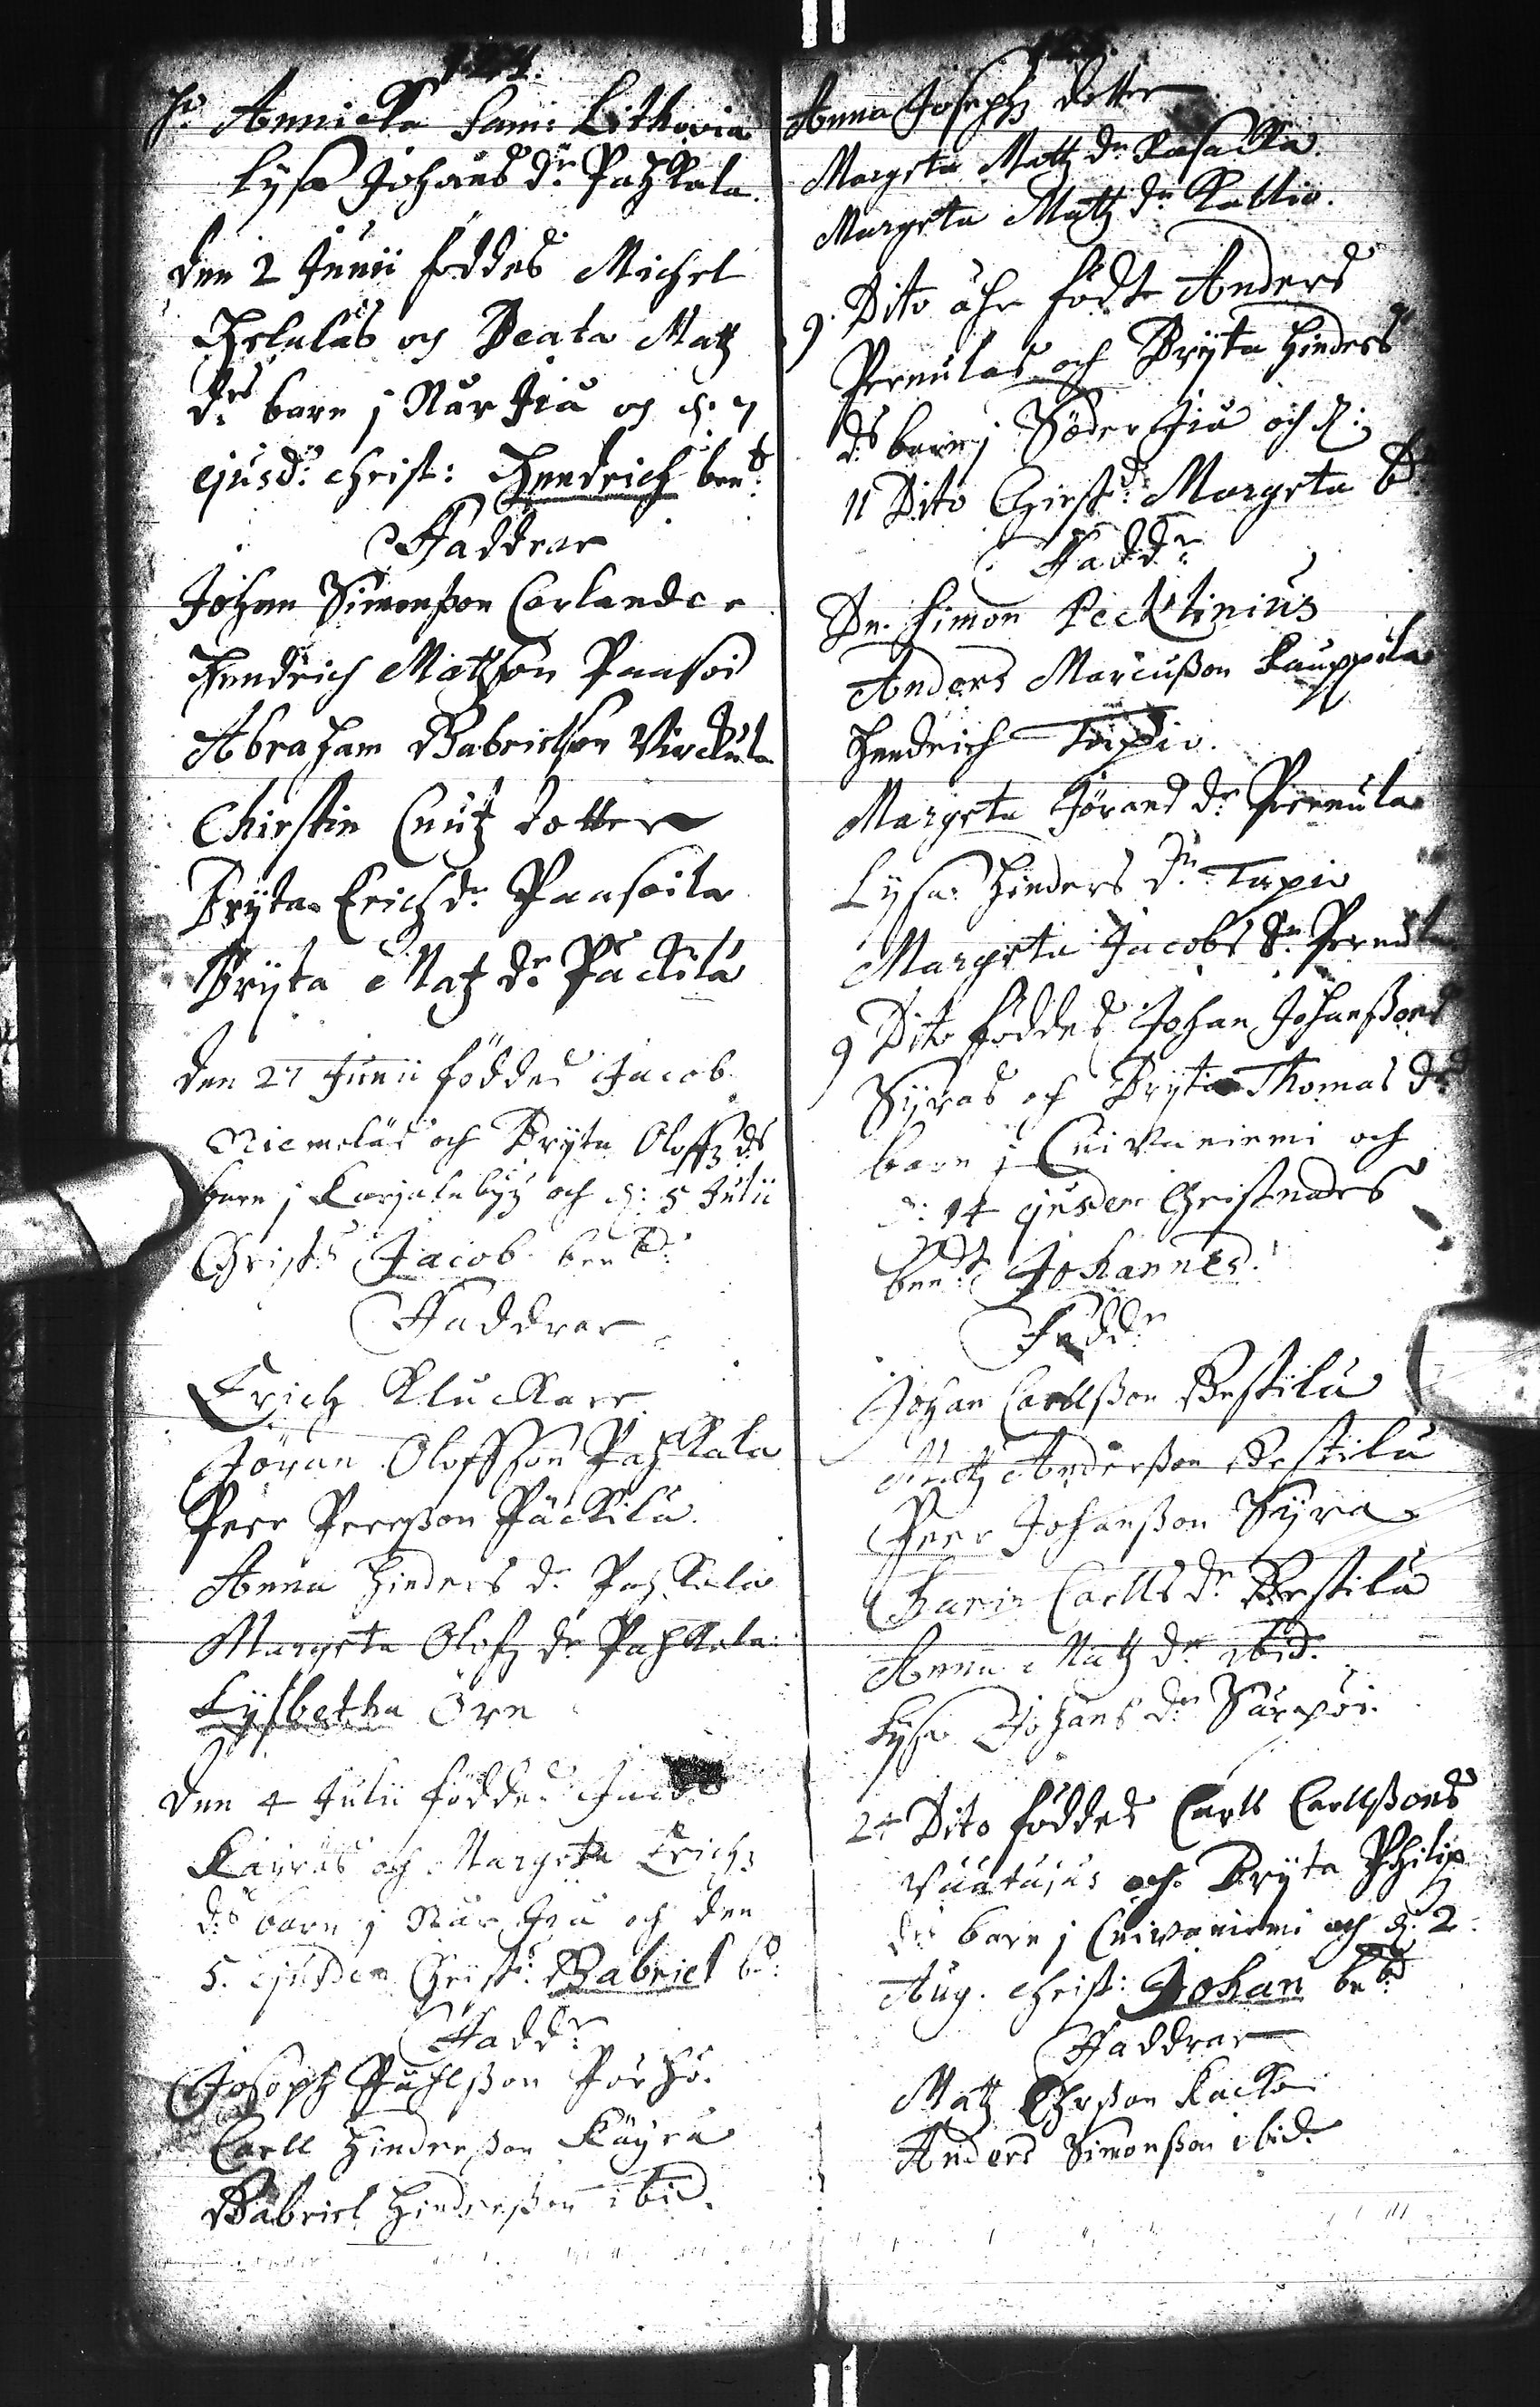 124.
H: Annicka Sam: Lithovia
Lysa Johans dr Pahkala
den 2 Junii föddes Michel
Helalas och Beata Matz
drs barn j Når Jiå och d: 7
ejusd: Christ: Hendrich ben:d
Faddrar
Johan Simonßon Carlander
Hendrich Matzson Paasoi
Abraham Gabrielson Virckula
Chirstin Cnutz dotter
Bryta Erichz dr Paasoila
Bryta Matz dr Päckilä
den 27 Junii föddes Jacob
Niemeläs och Bryta Oloffz ds
barn j Karjalabyz och d: 5 Julii
Christ:s Jacob ben:d
Faddrar
Erich Kluckare
Jöran Oloffson Pahkala
Peer Peerßon Päckilä
Anna Hinders dr Pahkala
Margeta Olofz dr Pahkala
Lysbetha Öre
den 4 Julii föddes Jacobs
Käyräs och Margeta Erichz
ds barn j Når Jiå och den
5. ejusdem Christ: Gabriel bd:
Faddr
Joseph Påhlßon Pörhö.
Carll Hinderßon Käyrä
Gabriel Hinderßon ibid.
Anna Josephz dotter
Margeta Mattz dr Kasacka
Margeta Matz dr Kallio.
9. Dito åhr född Anders
Pernulas och Bryta Hinders
ds barn j Söder Jiå och d:
11 Dito Christd: Margeta bd
Faddr
Dn. Simon Pecklinius
Anders Marcußon Kauppila
Hendrich Tapio.
Margeta Jörans dr Pernula
Lysa Hinders dr Tapio
Margeta Jacobs dr Pernula
9 Dito föddes Johan Johanßons
Syras och Bryta Thomas ds
barn j Cuivaniemi och
d: 14 ejusdem Christnades
ben:d Johannes.
Faddr
Johan Carllßon Bestilä
Matz Anderßon Bestilä
Peer Johanßon Syra
Karin Carlls dr Bestilä
Anna Matz dr ibid.
Lysa Johans dr Sarapöi
24 Dito föddes Carll Carllßons
och Bryta Philip
ds barn j Cuivaniemi och d: 2
Aug. Christ: Johan bed
Faddrar
Matz Kacko
Anders Simonßon ibid.